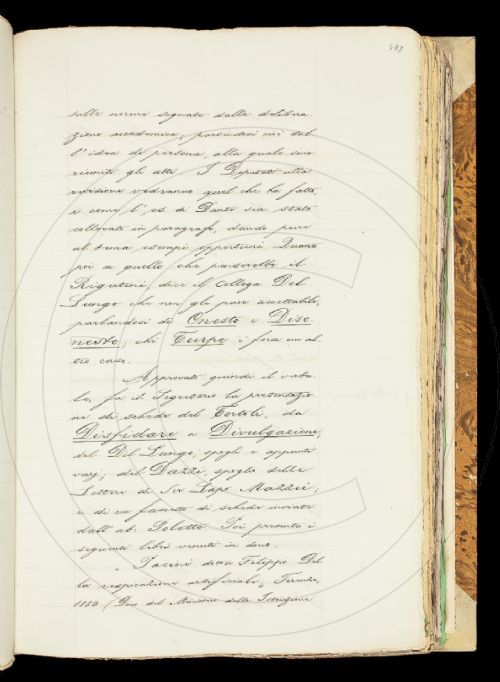 487
sulle norme segnate dalla delibera
zione accademica, partendosi così dal
l'idea di persona, alla quale sono
riceuti gli atti. I Deputati alla
revisione vedranno quel che ha fatto,
e come l'es. di Dante sia stato
collocato in paragrafo, dando pure
al tema esempi opportuni. Quanto
poi a quello che porrebbe il
Rigutini, dice il Collega Del
Lungo che non gli pare accettabile,
parlandosi di Onesto e Diso-
nesto; chi Turpe: fora un al
tro caso.
Approvato quindi il verba
le, fa il Segretario la presentazio
ne di schede del Tortoli, da
Disfidare a Divulgazione,
del Del Lungo, spogli e appunti
varj; del Dazzi, spoglio delle
Lettere di Ser Lapo Mazzei;
e di un fascetto di schede inviate
dall'ab. Poletto. Poi presenta i
seguenti libri venuti in dono.
" Pacini dott. Filippo. Del
la respirazione artificiale, Firenze,
1880 (Dono del Ministro della Istruzione